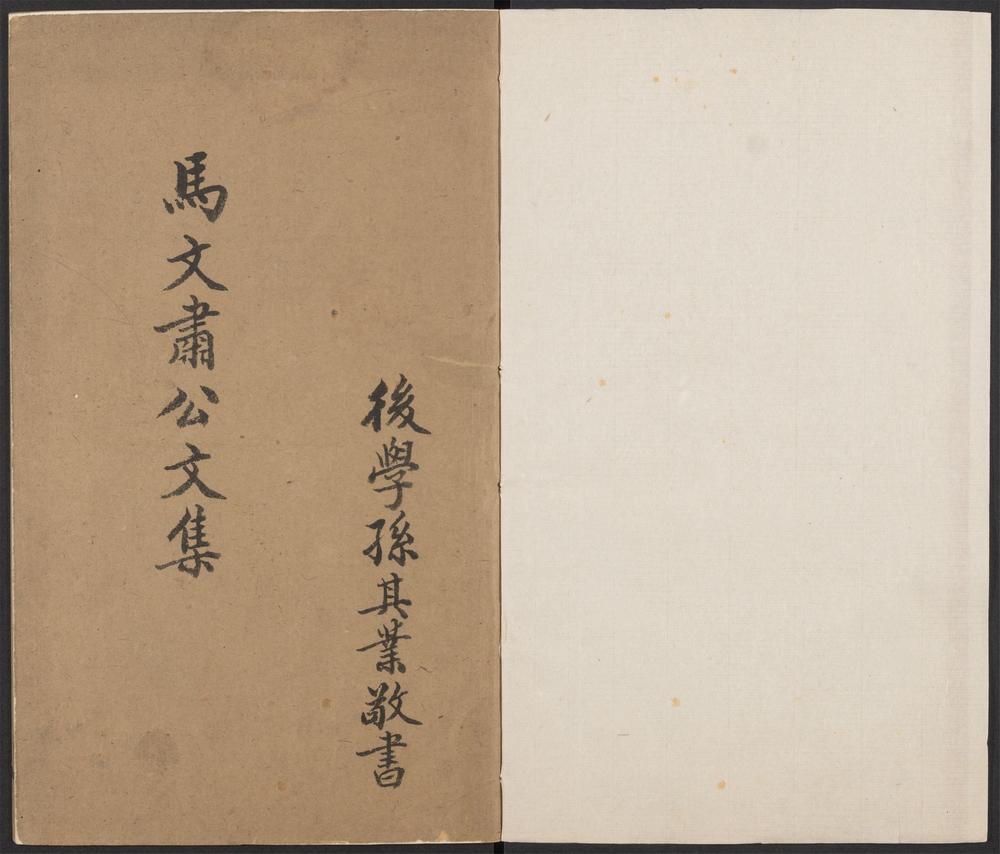 後學孫其業敬書
馬文肅公文集